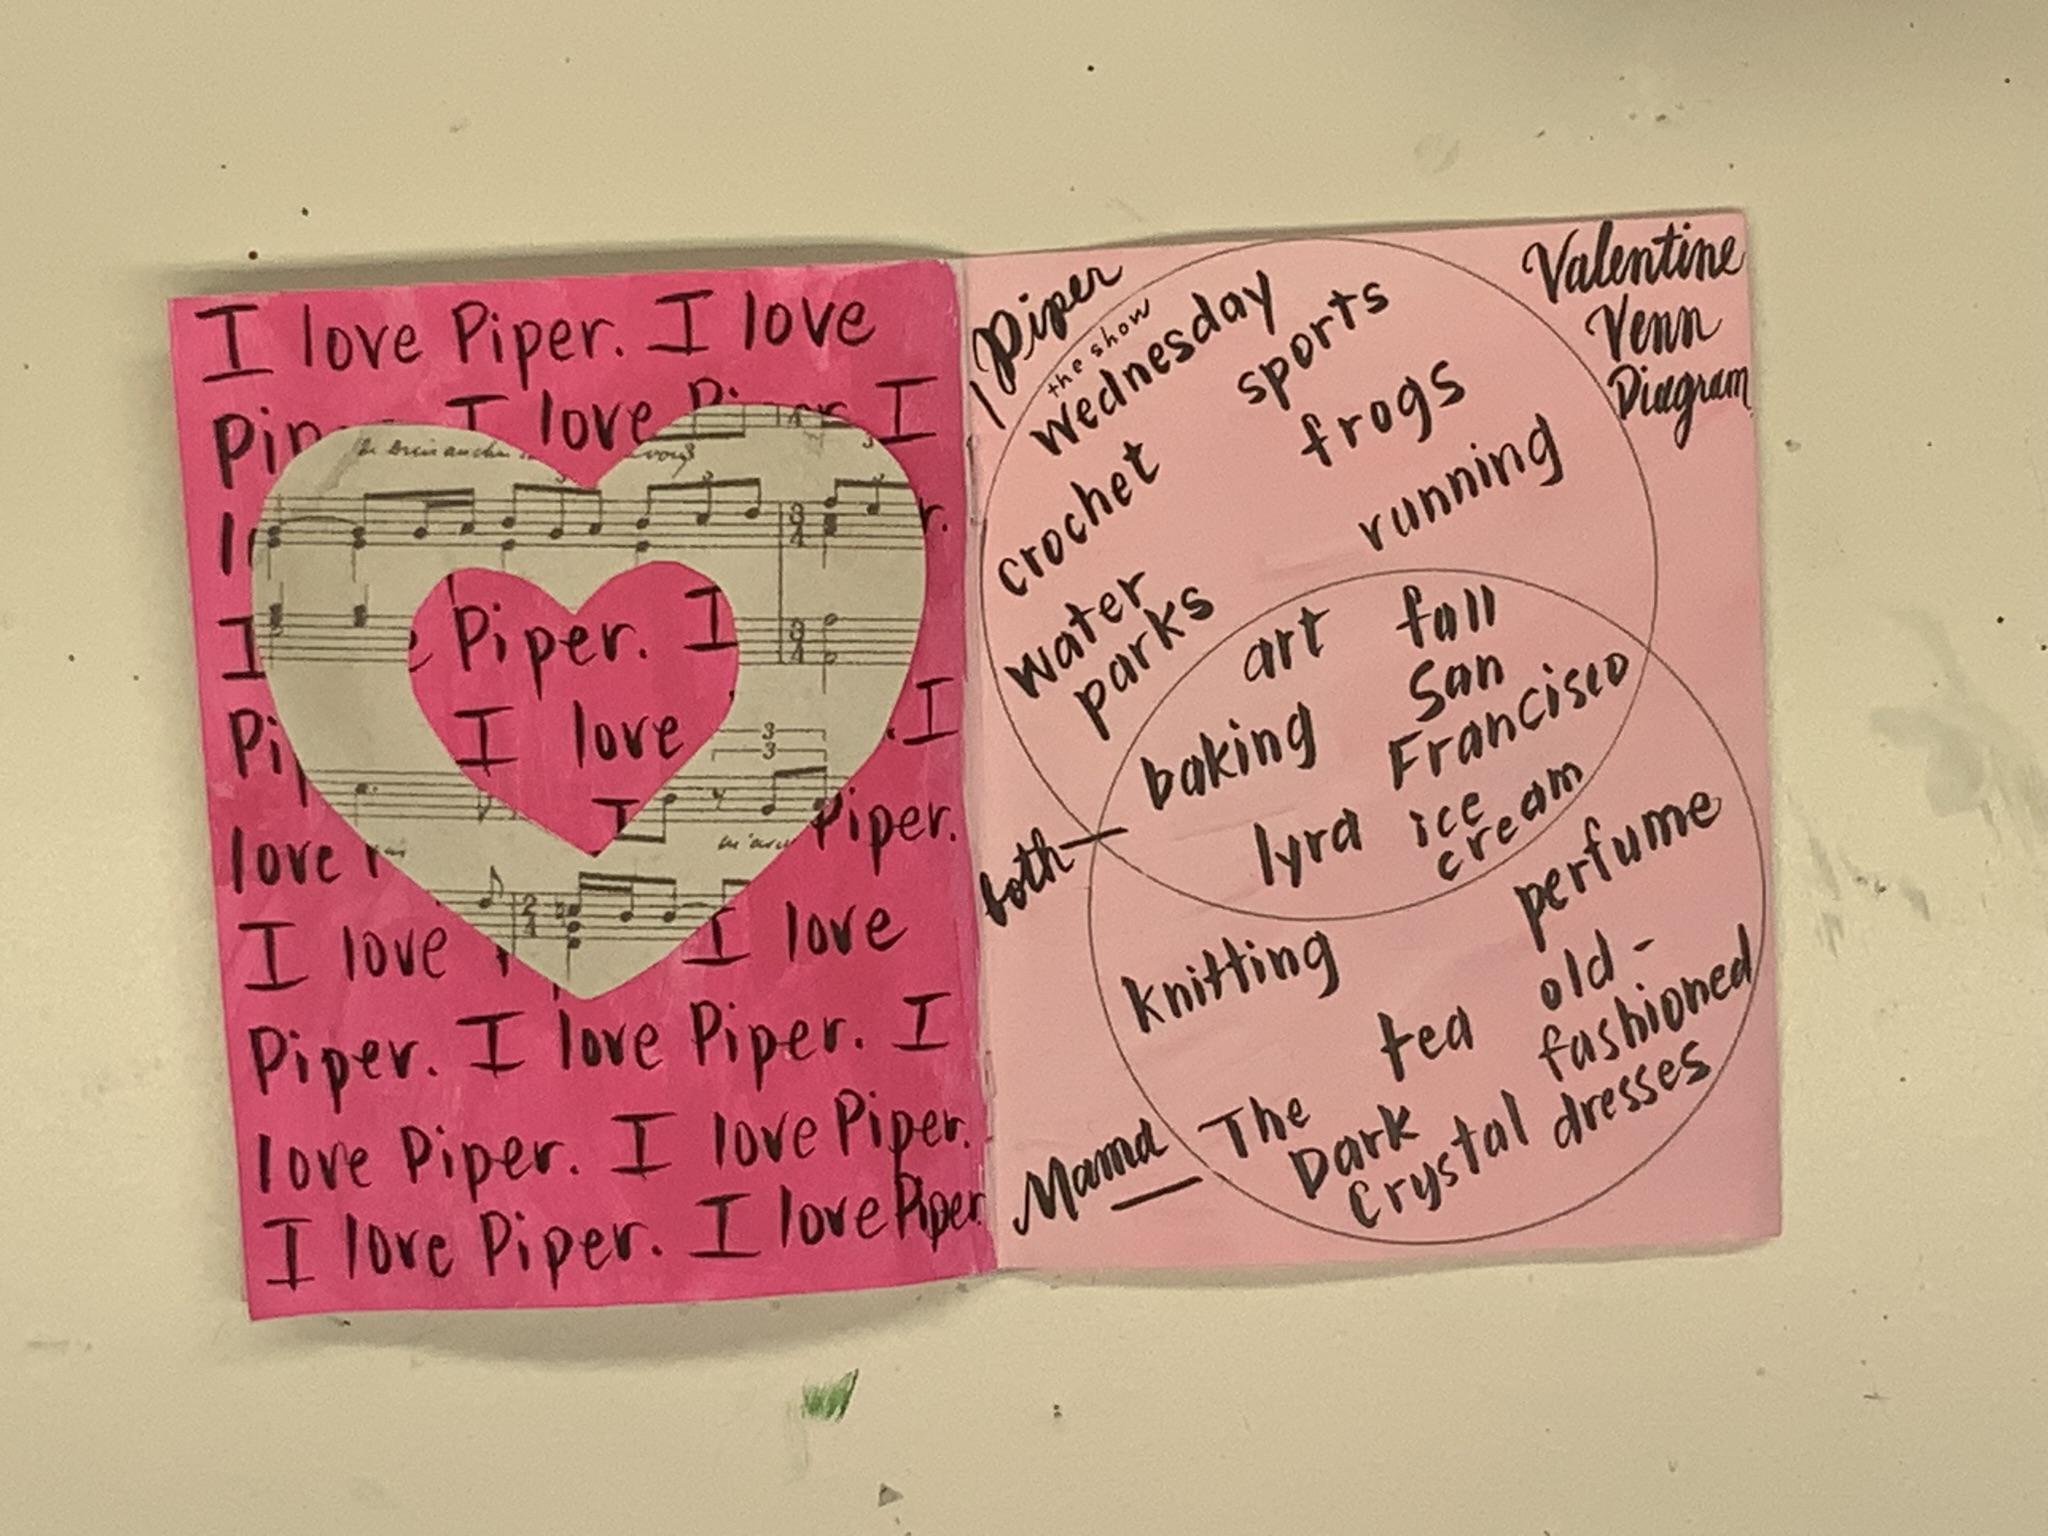 I love Piper. I love
I love I
I
Piper. I
I love
. I
Piper.
love
I love I love
Piper. I love Piper. I
love Piper. I love Piper.
I love Piper. I love Piper.
Valentine
Venn
Diagram
Piper
the show
Wednesday
sports
frogs
crochet
running
water
parks
art fall
San
Francisco
baking
lyra ice
cream
both
perfume
knitting
old-
fashioned
dresses
tea
Mama
The
Dark
Crystal